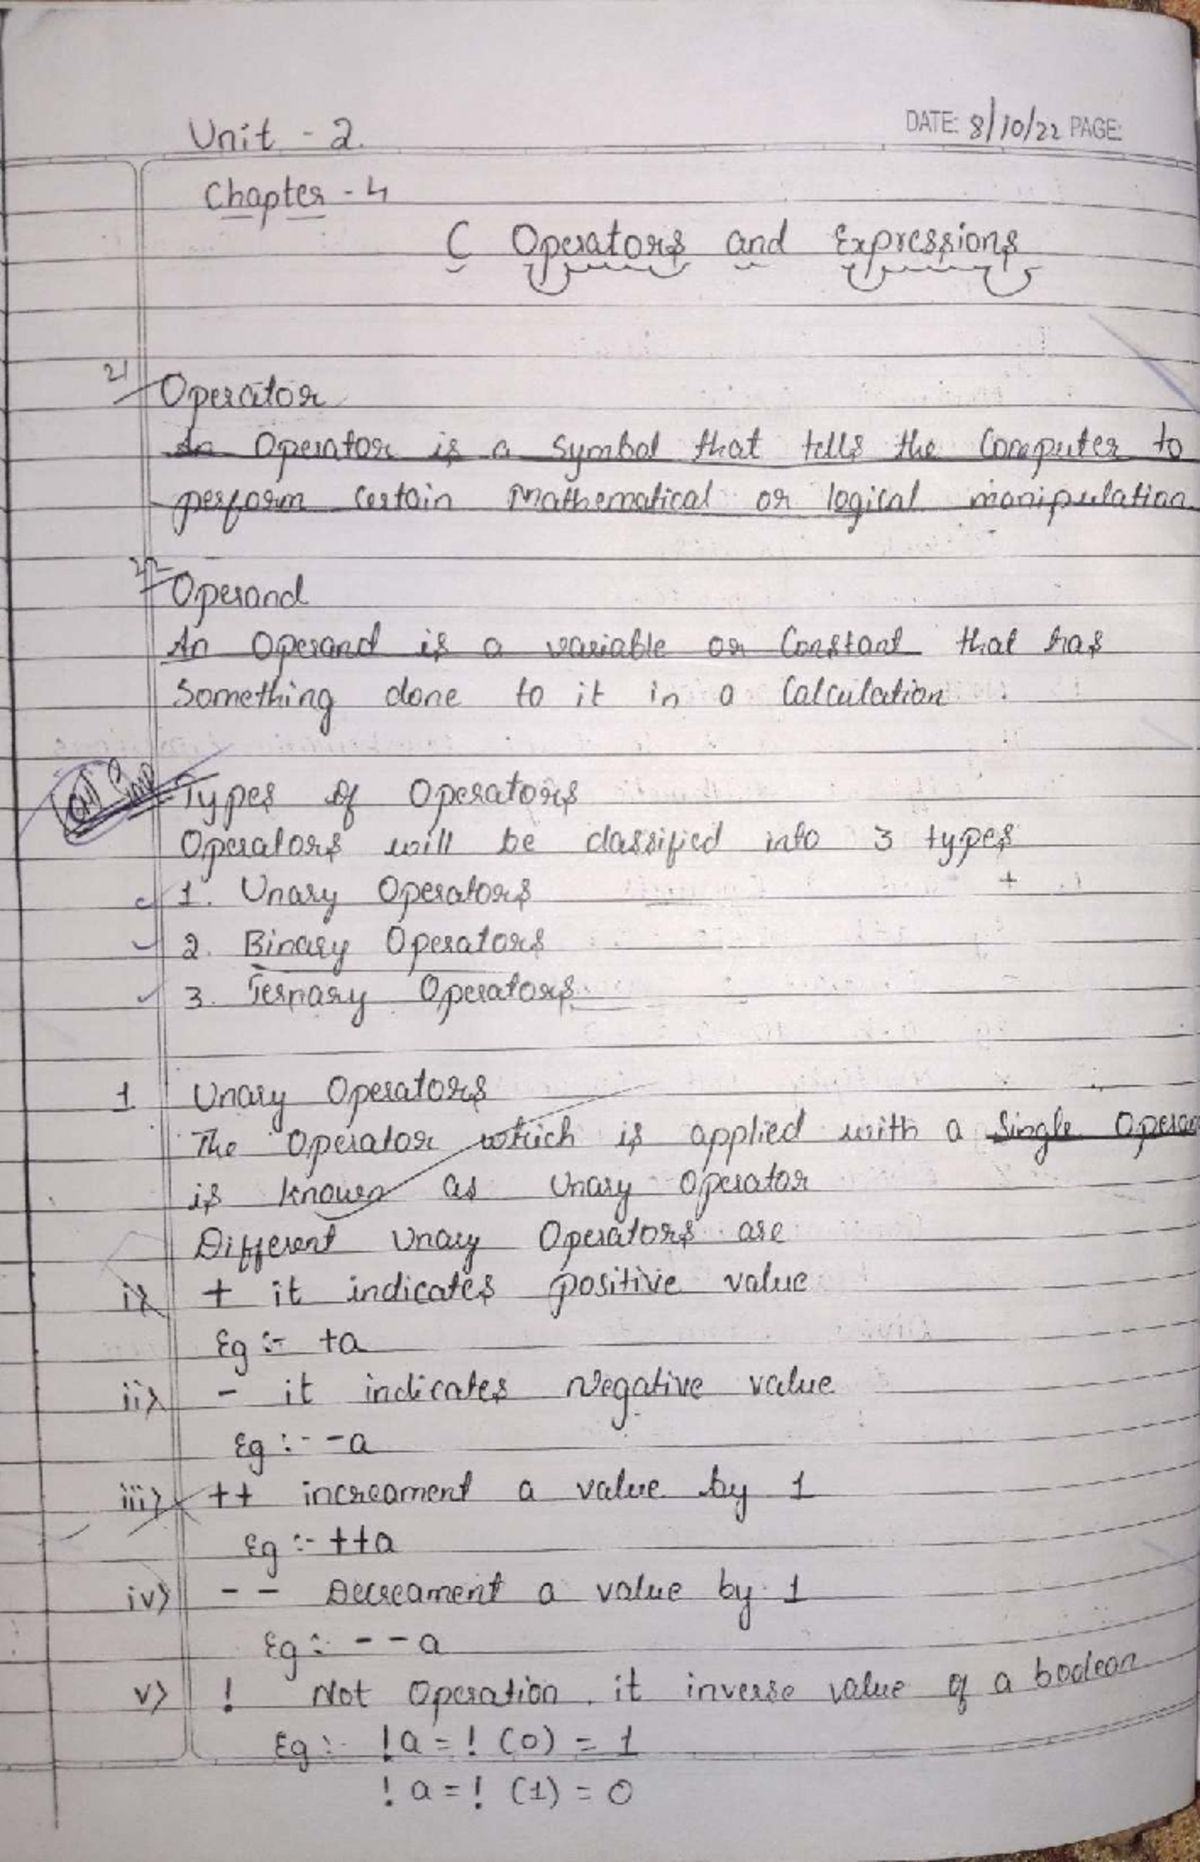 DATE: 8/10/22 PAGE:
Unit - 2.
Chapter - 4
C Operators and Expressions
Operator
An Operator is a Symbol that tells the Computer to
perform Certain Mathematical or logical manipulation.
Operand
An Operand is a variable or Constant that has
Something done to it in a Calculation
Types of Operators
Operators will be classified into 3 types
1. Unary Operators
2. Binary Operators
3. Ternary Operators
1 Unary Operators
The Operator which is applied with a Single
is known as Unary Operator
Different Unary Operators are
i> + it indicates positive value
Eg :- +a
ii> - it indicates Negative value
Eg :- -a
iii> ++ increament a value by 1
Eg :- ++a
iv> -- Decreament a value by 1
Eg :- --a
v> ! Not Operation, it inverse value of a boolean
Eg :- !a = ! (0) = 1
!a = ! (1) = 0